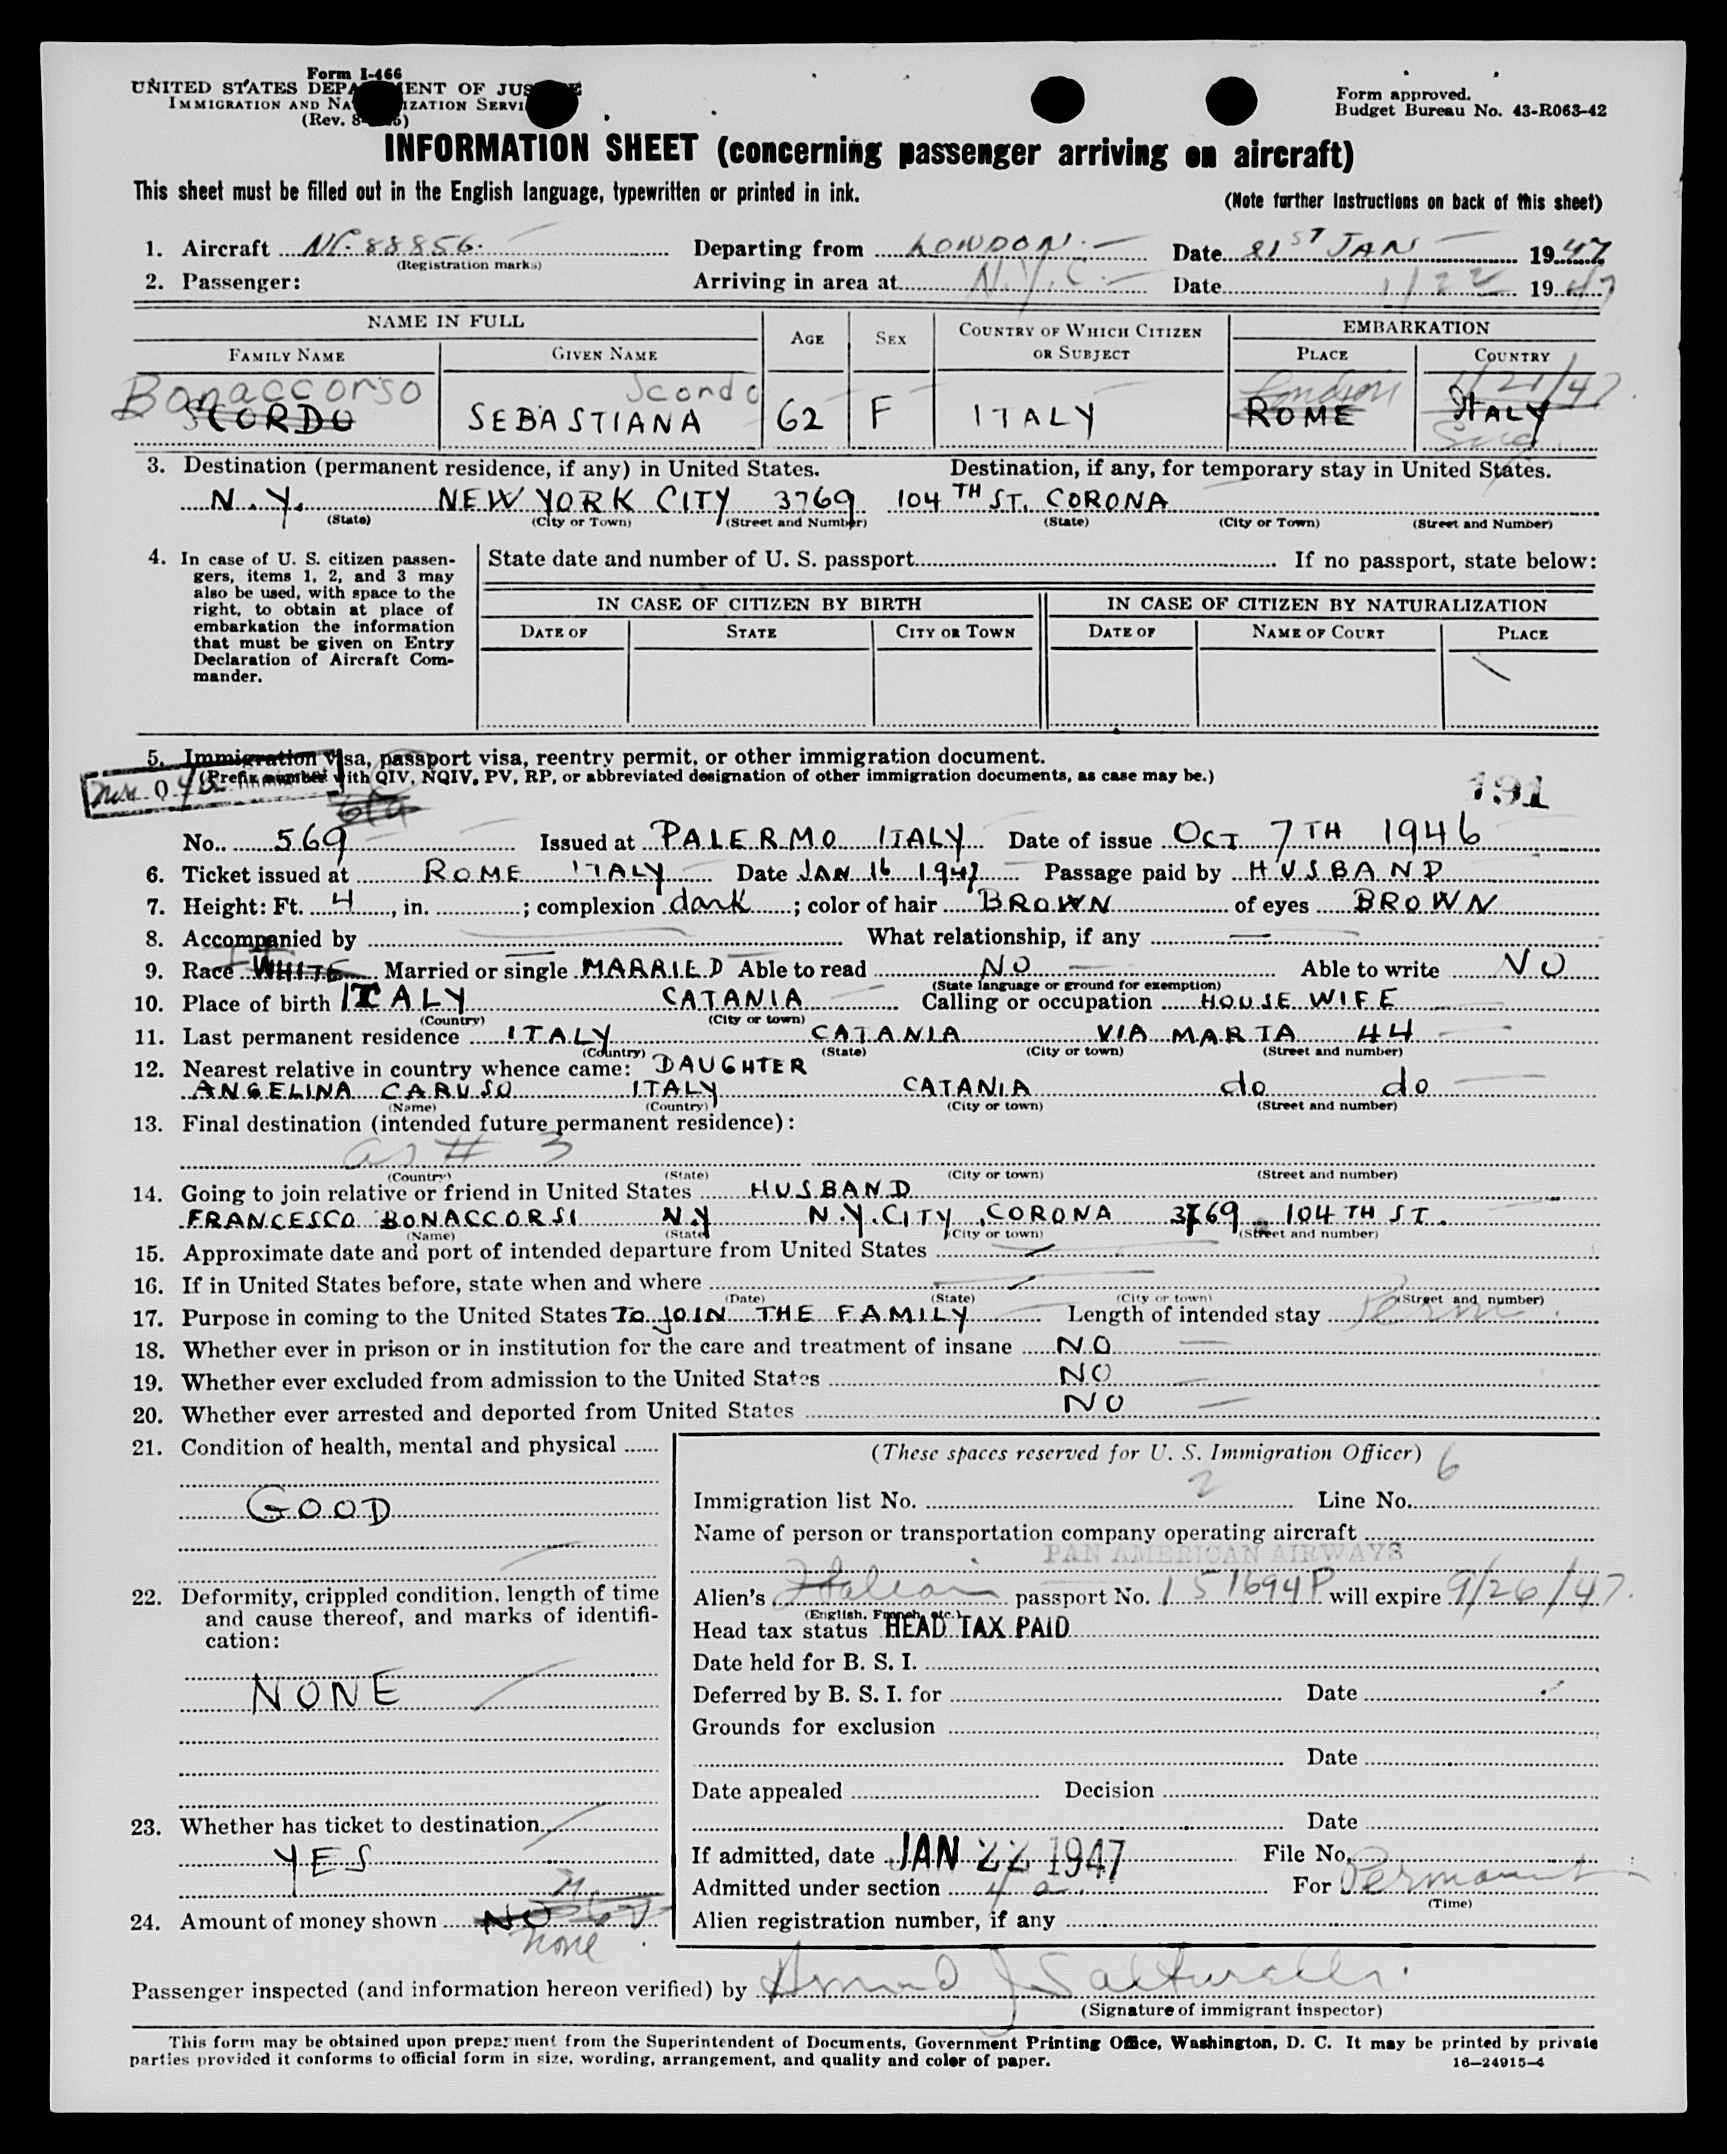 Form I-466
UNITED STATES DEPARTMENT OF JUSTICE
IMMIGRATION AND NATURALIZATION SERVICE
(Rev. 8- )
Form approved.
Budget Bureau No. 43-R063-42
INFORMATION SHEET (concerning passenger arriving on aircraft)
This sheet must be filled out in the English language, typewritten or printed in ink.
(Note further instructions on back of this sheet)
1. Aircraft NC. 88856. Departing from LONDON. Date 21ST JAN 1947
(Registration marks)
2. Passenger: Arriving in area at N.Y.C. Date 1/22 1947
NAME IN FULL AGE SEX COUNTRY OF WHICH CITIZEN OR SUBJECT EMBARKATION
FAMILY NAME GIVEN NAME PLACE COUNTRY
Bonaccorso Scordo London 1/21/47
SCORDO SEBASTIANA 62 F ITALY ROME ITALY
3. Destination (permanent residence, if any) in United States. Destination, if any, for temporary stay in United States.
N.Y. NEW YORK CITY 3769 104TH ST. CORONA
(State) (City or Town) (Street and Number) (State) (City or Town) (Street and Number)
4. In case of U. S. citizen passengers, items 1, 2, and 3 may also be used, with space to the right, to obtain at place of embarkation the information that must be given on Entry Declaration of Aircraft Commander.
State date and number of U. S. passport If no passport, state below:
IN CASE OF CITIZEN BY BIRTH IN CASE OF CITIZEN BY NATURALIZATION
DATE OF STATE CITY OR TOWN DATE OF NAME OF COURT PLACE
5. Immigration visa, passport visa, reentry permit, or other immigration document.
(Prefix number with QIV, NQIV, PV, RP, or abbreviated designation of other immigration documents, as case may be.)
191
No. 569 Issued at PALERMO ITALY Date of issue OCT 7TH 1946
6. Ticket issued at ROME ITALY Date JAN 16 1947 Passage paid by HUSBAND
7. Height: Ft. 4, in. ; complexion dark; color of hair BROWN of eyes BROWN
8. Accompanied by What relationship, if any
9. Race WHITE Married or single MARRIED Able to read NO Able to write NO
(State language or ground for exemption)
10. Place of birth ITALY CATANIA Calling or occupation HOUSE WIFE
(Country) (City or town)
11. Last permanent residence ITALY CATANIA VIA MARTA 44
(Country) (State) (City or town) (Street and number)
12. Nearest relative in country whence came: DAUGHTER
ANGELINA CARUSO ITALY CATANIA do do
(Name) (Country) (City or town) (Street and number)
13. Final destination (intended future permanent residence):
as # 3
(Country) (State) (City or town) (Street and number)
14. Going to join relative or friend in United States HUSBAND
FRANCESCO BONACCORSI N.Y N.Y. CITY, CORONA 3769 104TH ST.
(Name) (State) (City or town) (Street and number)
15. Approximate date and port of intended departure from United States
16. If in United States before, state when and where
(Date) (State) (City or town) (Street and number)
17. Purpose in coming to the United States TO JOIN THE FAMILY Length of intended stay Perm.
18. Whether ever in prison or in institution for the care and treatment of insane NO
19. Whether ever excluded from admission to the United States NO
20. Whether ever arrested and deported from United States NO
21. Condition of health, mental and physical
GOOD
22. Deformity, crippled condition, length of time and cause thereof, and marks of identification:
NONE
23. Whether has ticket to destination
YES
24. Amount of money shown NO
none
(These spaces reserved for U. S. Immigration Officer)
Immigration list No. 2 Line No. 6
Name of person or transportation company operating aircraft
PAN AMERICAN AIRWAYS
Alien's Italian passport No. 151694P will expire 9/26/47.
(English, French, etc.)
Head tax status HEAD TAX PAID
Date held for B. S. I.
Deferred by B. S. I. for Date
Grounds for exclusion
Date
Date appealed Decision
Date
If admitted, date JAN 22 1947 File No.
Admitted under section 4 a. For Permanent
(Time)
Alien registration number, if any
Passenger inspected (and information hereon verified) by
(Signature of immigrant inspector)
This form may be obtained upon prepayment from the Superintendent of Documents, Government Printing Office, Washington, D. C. It may be printed by private
parties provided it conforms to official form in size, wording, arrangement, and quality and color of paper.
16—24915-4